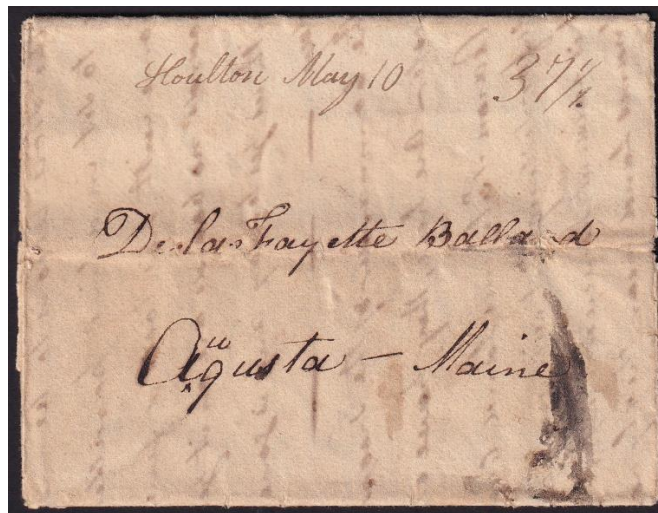 Houlton May 10 37½
De. LaFayette Ballard
Augusta — Maine